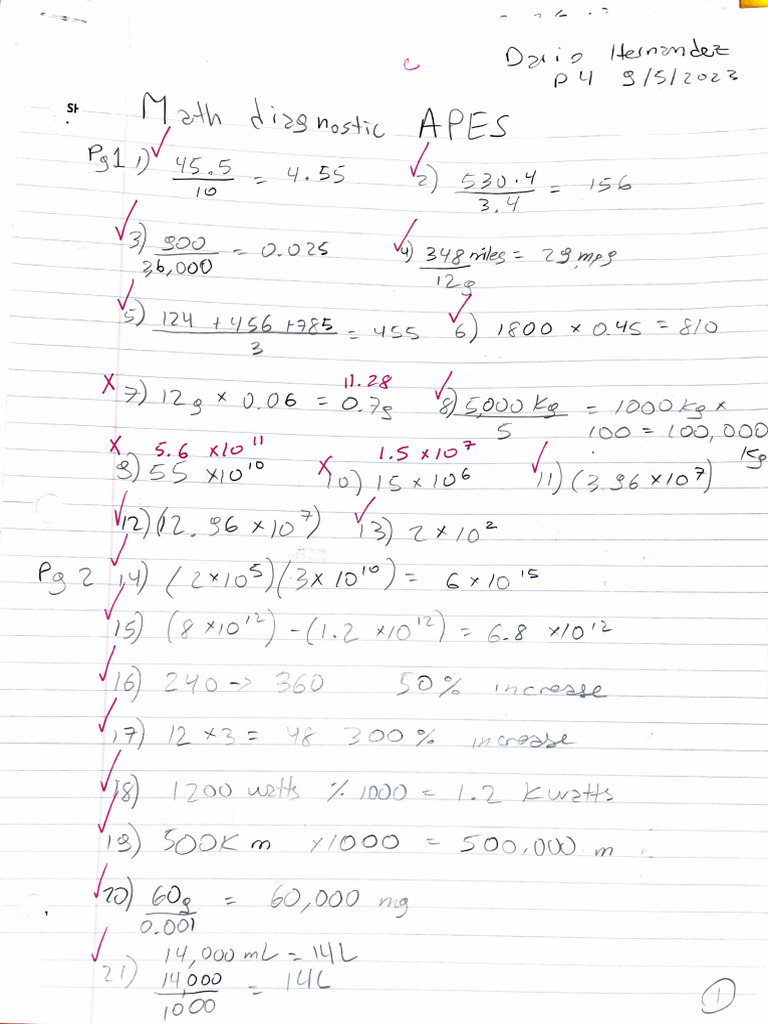 Dario Hernandez
P4 9/5/2023
Math diagnostic APES
Pg1 1) 45.5/10 = 4.55 2) 530.4/3.4 = 156
3) 900/36,000 = 0.025 4) 348 miles/12g = 29 mpg
5) 124 + 456 + 785/3 = 455 6) 1800 × 0.45 = 810
11.28
7) 12g × 0.06 = 0.7g 8) 5,000 Kg/5 = 1000 Kg ×
100 = 100,000
Kg
5.6 ×10¹¹ 1.5 ×10⁷
9) 55 ×10¹⁰ 10) 15 × 10⁶ 11) (3.96 ×10⁷)
12) (12.96 ×10⁷) 13) 2 × 10²
Pg 2 14) (2×10⁵)(3×10¹⁰) = 6×10¹⁵
15) (8 ×10¹²) - (1.2 ×10¹²) = 6.8 ×10¹²
16) 240 -> 360 50% increase
17) 12 ×3 = 48 300% increase
18) 1200 watts % 1000 = 1.2 Kwatts
19) 500K m ×1000 = 500,000 m
20) 60g/0.001 = 60,000 mg
14,000 mL = 14L
21) 14,000/1000 = 14L
1